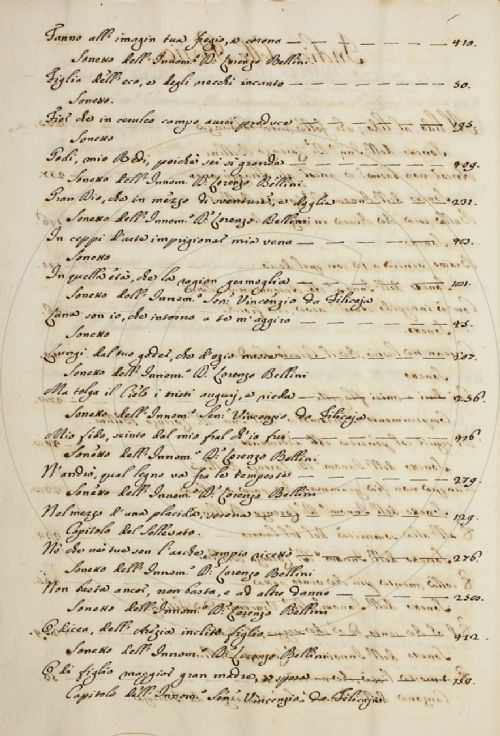 Fanno all' imagin tua fregio, e corona 410.
Sonetto dell' Innom.º D.r Lorenzo Bellini
Figlio dell' eco, e degli orecchi incanto 50.
Sonetto.
Fior che in ceruleo campo aurei produce 195.
Sonetto
Godi, mio Redi, poiche sei si grande 409.
Sonetto dell' Innom.º D.r Lorenzo Bellini.
Gran Dio, che in mezzo di sventure, e doglie 291.
Sonetto dell' Innom.º D.r Lorenzo Bellini
In ceppi d'arte imprigionai mia vena
Sonetto
In quella età, che la ragion germoglia 101.
Sonetto dell' Innom.º Sen.r Vincenzio da Filicaja
Luna son io, che intorno a te m'aggiro 45.
Sonetto
Lungi dal tuo goder, che d'ozio nasce
Sonetto dell' Innom.º D.r Lorenzo Bellini
Ma tolga il Cielo i tristi augurj, e rieda 256.
Sonetto dell' Innom.º Sen.r Vincenzio da Filicaja
Mio fido, scinto dal mio fral ch'io fui 416.
Sonetto dell' Innom.º D.r Lorenzo Bellini
N'andrò, qual legno va fra le tempeste 279.
Sonetto dell' Innom.º D.r Lorenzo Bellini
Nel mezzo d'una placida, serena 129.
Capitolo del Sollevato
Nò che non fu son l'arche, ampio ricetto 276.
Sonetto dell' Innom.º D.r Lorenzo Bellini
Non basta ancor, non basta, e ad altro danno
Sonetto dell' Innom.º D.r Lorenzo Bellini
dicea, dell' inclito figlio 412.
Sonetto dell' Innom.º D.r Lorenzo Bellini
di figlio maggior gran madre, e sposa 159.
Capitolo dell' Innom.º Sen.r Vincenzio da Filicaja